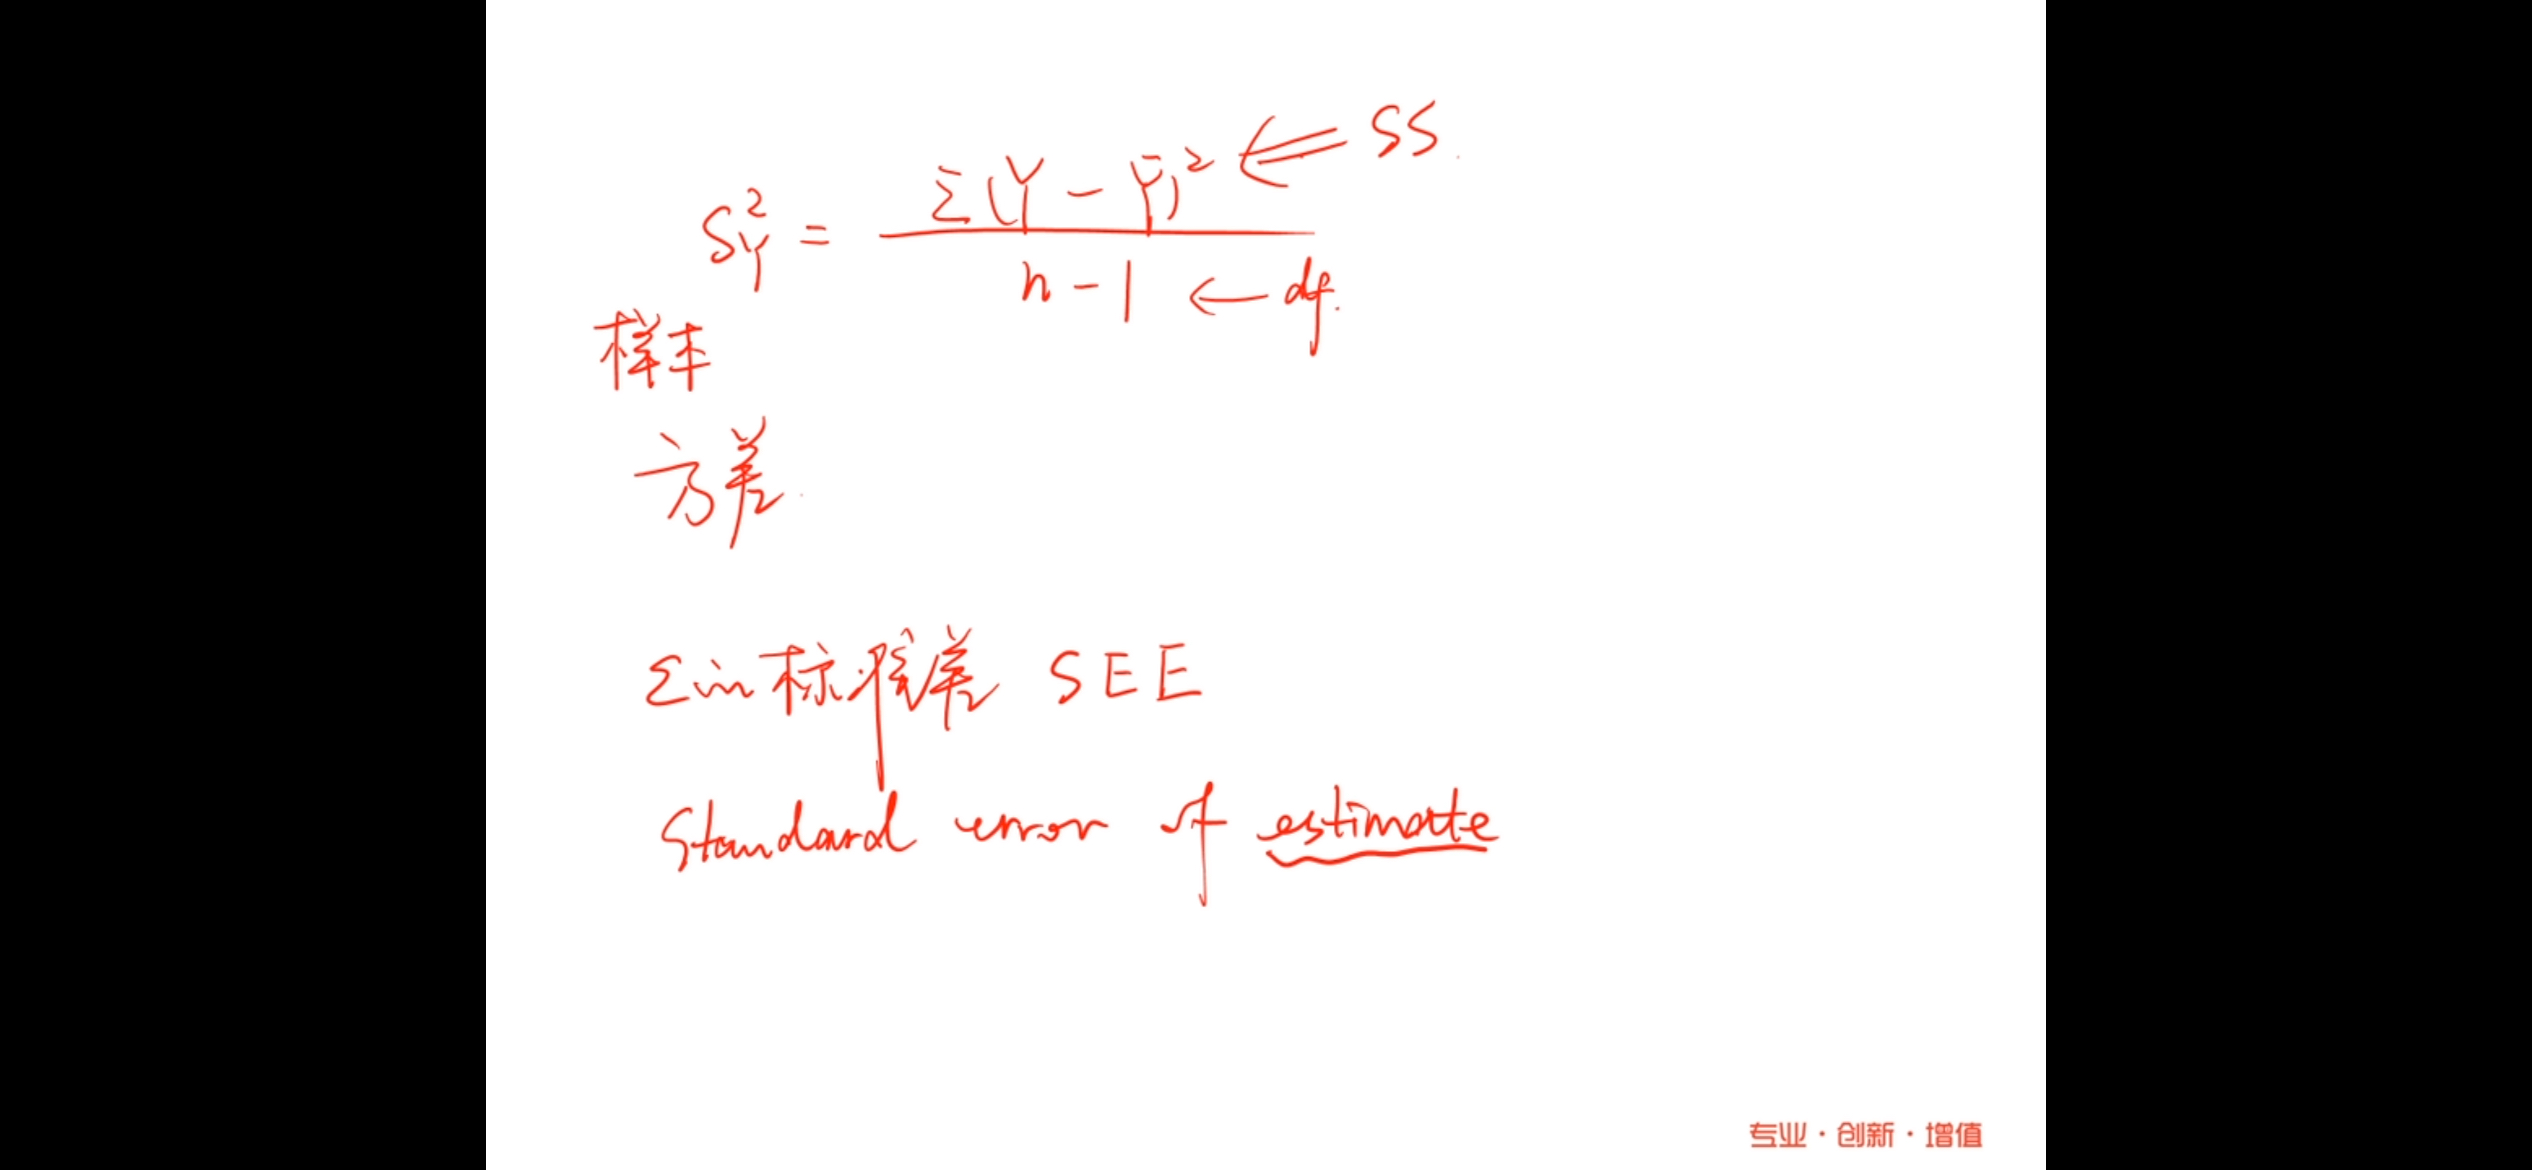 Σ(Y - Ȳ)² ⇐ SS.
S²Y =
n - 1 ← df.
样本
方差.
标准差 SEE
Standard error of estimate
专业·创新·增值